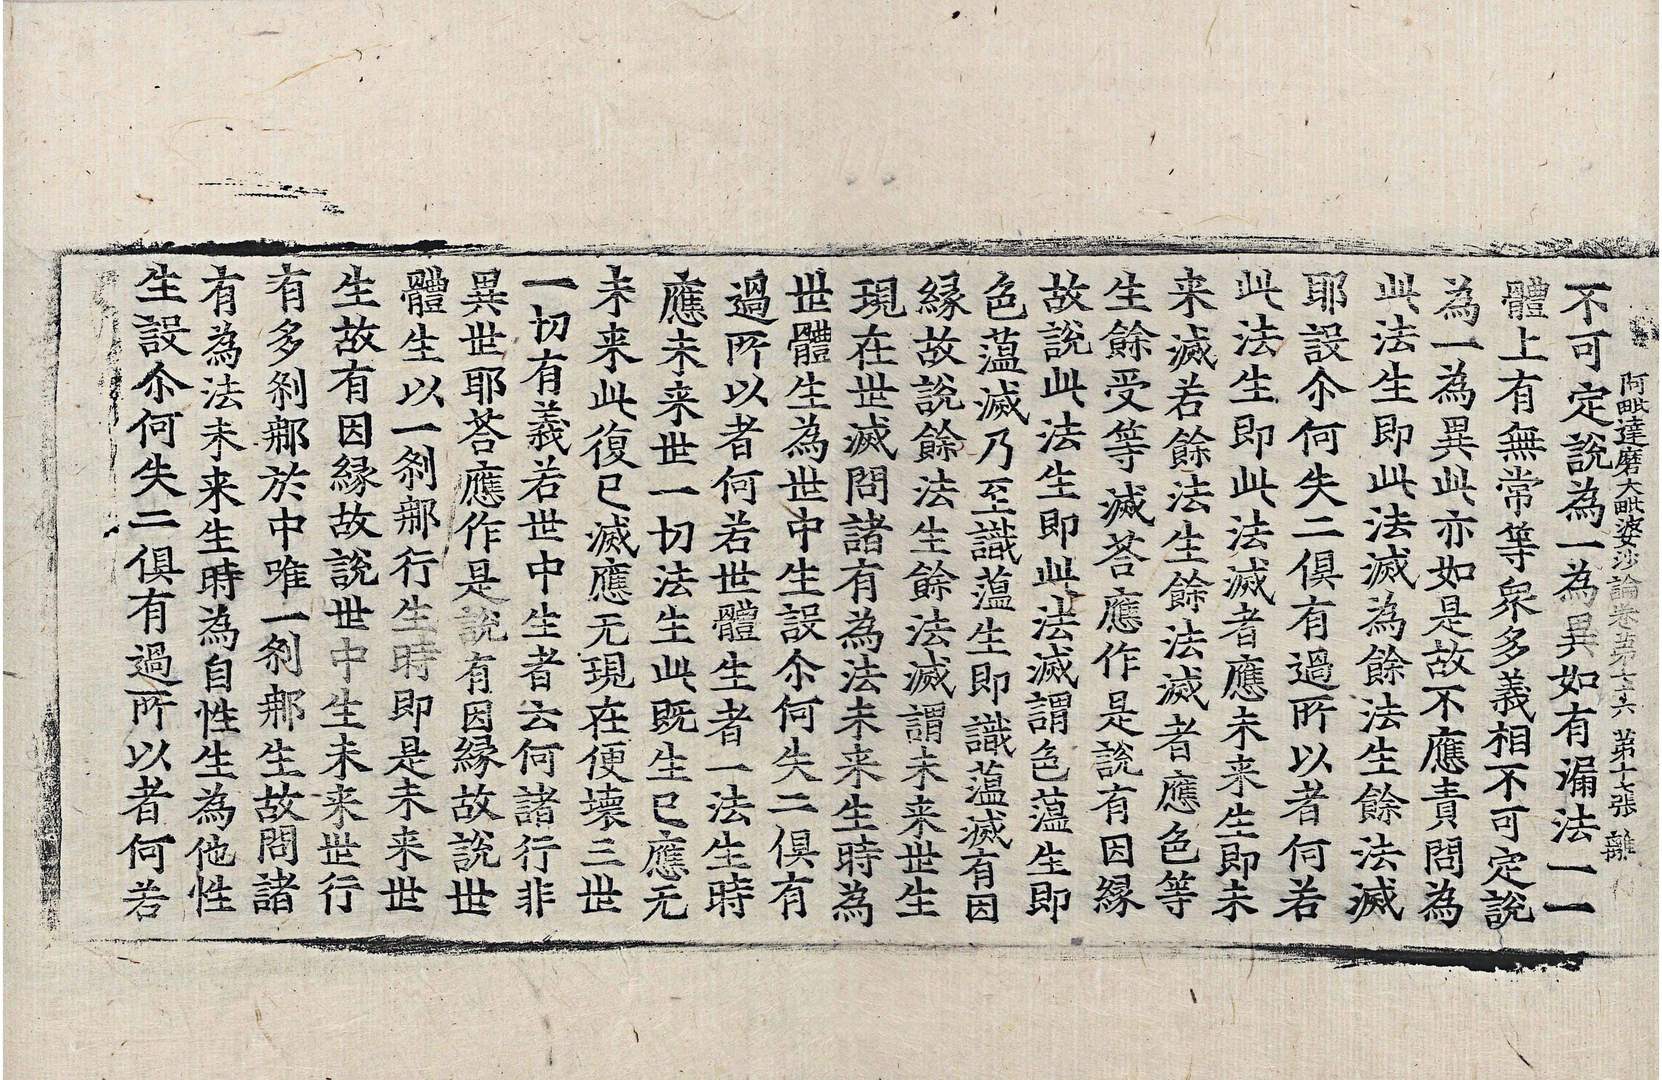 阿毗達磨大毗婆沙論卷第七十六 第十七張 雖
不可定說為一為異如有漏法一一
體上有無常等眾多義相不可定說
為一為異此亦如是故不應責問為
此法生即此法滅為餘法生餘法滅
耶設尒何失二俱有過所以者何若
此法生即此法滅者應未来生即未
来滅若餘法生餘法滅者應色等
生餘受等滅荅應作是說有因緣
故說此法生即此法滅謂色蕰生即
色蕰滅乃至識蕰生即識蕰滅有因
緣故說餘法生餘法滅謂未来世生
現在世滅問諸有為法未来生時為
世體生為世中生設尒何失二俱有
過所以者何若世體生者一法生時
應未来世一切法生此既生已應无
未来此復已滅應无現在便壞三世
一切有義若世中生者云何諸行非
異世耶荅應作是說有因緣故說世
體生以一剎那行生時即是未来世
生故有因緣故說世中生未来世行
有多剎那於中唯一剎那生故問諸
有為法未来生時為自性生為他性
生設尒何失二俱有過所以者何若